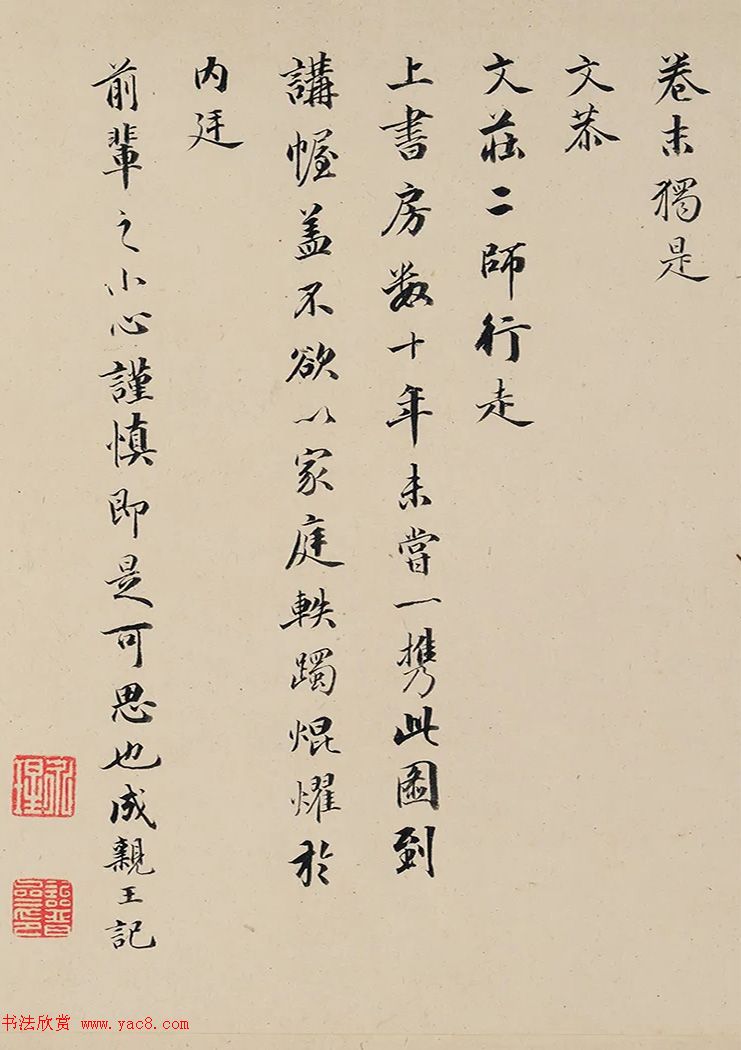 卷末獨是
文恭
文莊二師行走
上書房数十年未嘗一携此圖到
講幄盖不欲以家庭軼躅焜燿於
内廷
前輩之小心謹慎即是可思也成親王記
永瑆
詒晉齋印
书法欣赏 www.yac8.com